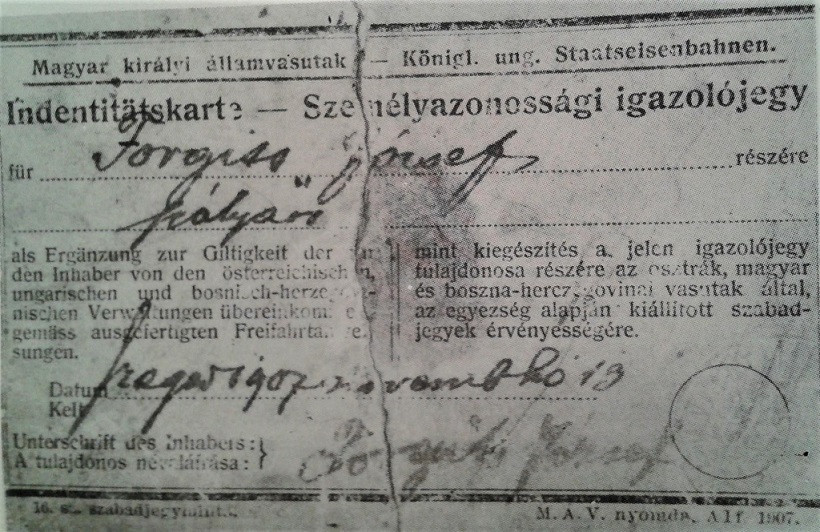 Magyar királyi államvasutak — Königl. ung. Staatseisenbahnen.
Indentitätskarte — Személyazonossági igazolójegy
für Forgiss József részére
pályaőr
als Ergänzung zur Giltigkeit der
den Inhaber von den österreichischen,
ungarischen und bosnisch-herzego-
nischen Verwaltungen übereinkom
gemäss ausgefertigten Freifahrta
sungen.
mint kiegészítés a jelen igazolójegy
tulajdonosa részére az osztrák, magyar
és boszna-herczegovinai vasutak által,
az egyezség alapján kiállított szabad-
jegyek érvényességére.
Datum
Kelt Szeged 1907 novembhó 13
Unterschrift des Inhabers:
A tulajdonos névaláírása: József
16. sz. szabadjegyminta.
M. A. V. nyomda, A lf. 1907.